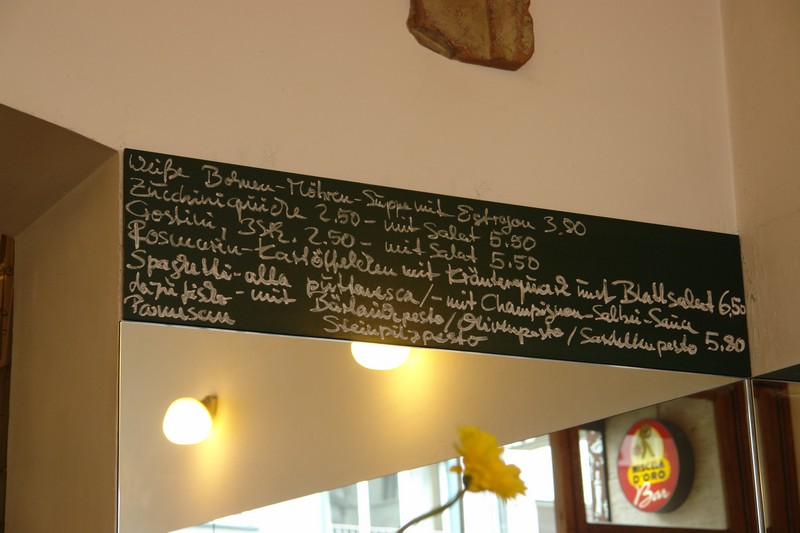 Weiße Bohnen-Möhren-Suppe mit Estragon 3.80
Zucchiniquiche 2.50 - mit Salat 5.50
Crostini 3Stk. 2.50 - mit Salat 5.50
Rosmarin-Kartöffelchen mit Kräuterquark und Blattsalat 6,50
Spaghetti-alla puttanesca/-mit Champignon-Salbei-Sauce
dazu - mit Bärlauchpesto/Olivenpesto/Sardellenpesto 5.80
Parmesan Steinpilzpesto
MISCELA
D'ORO
Bar